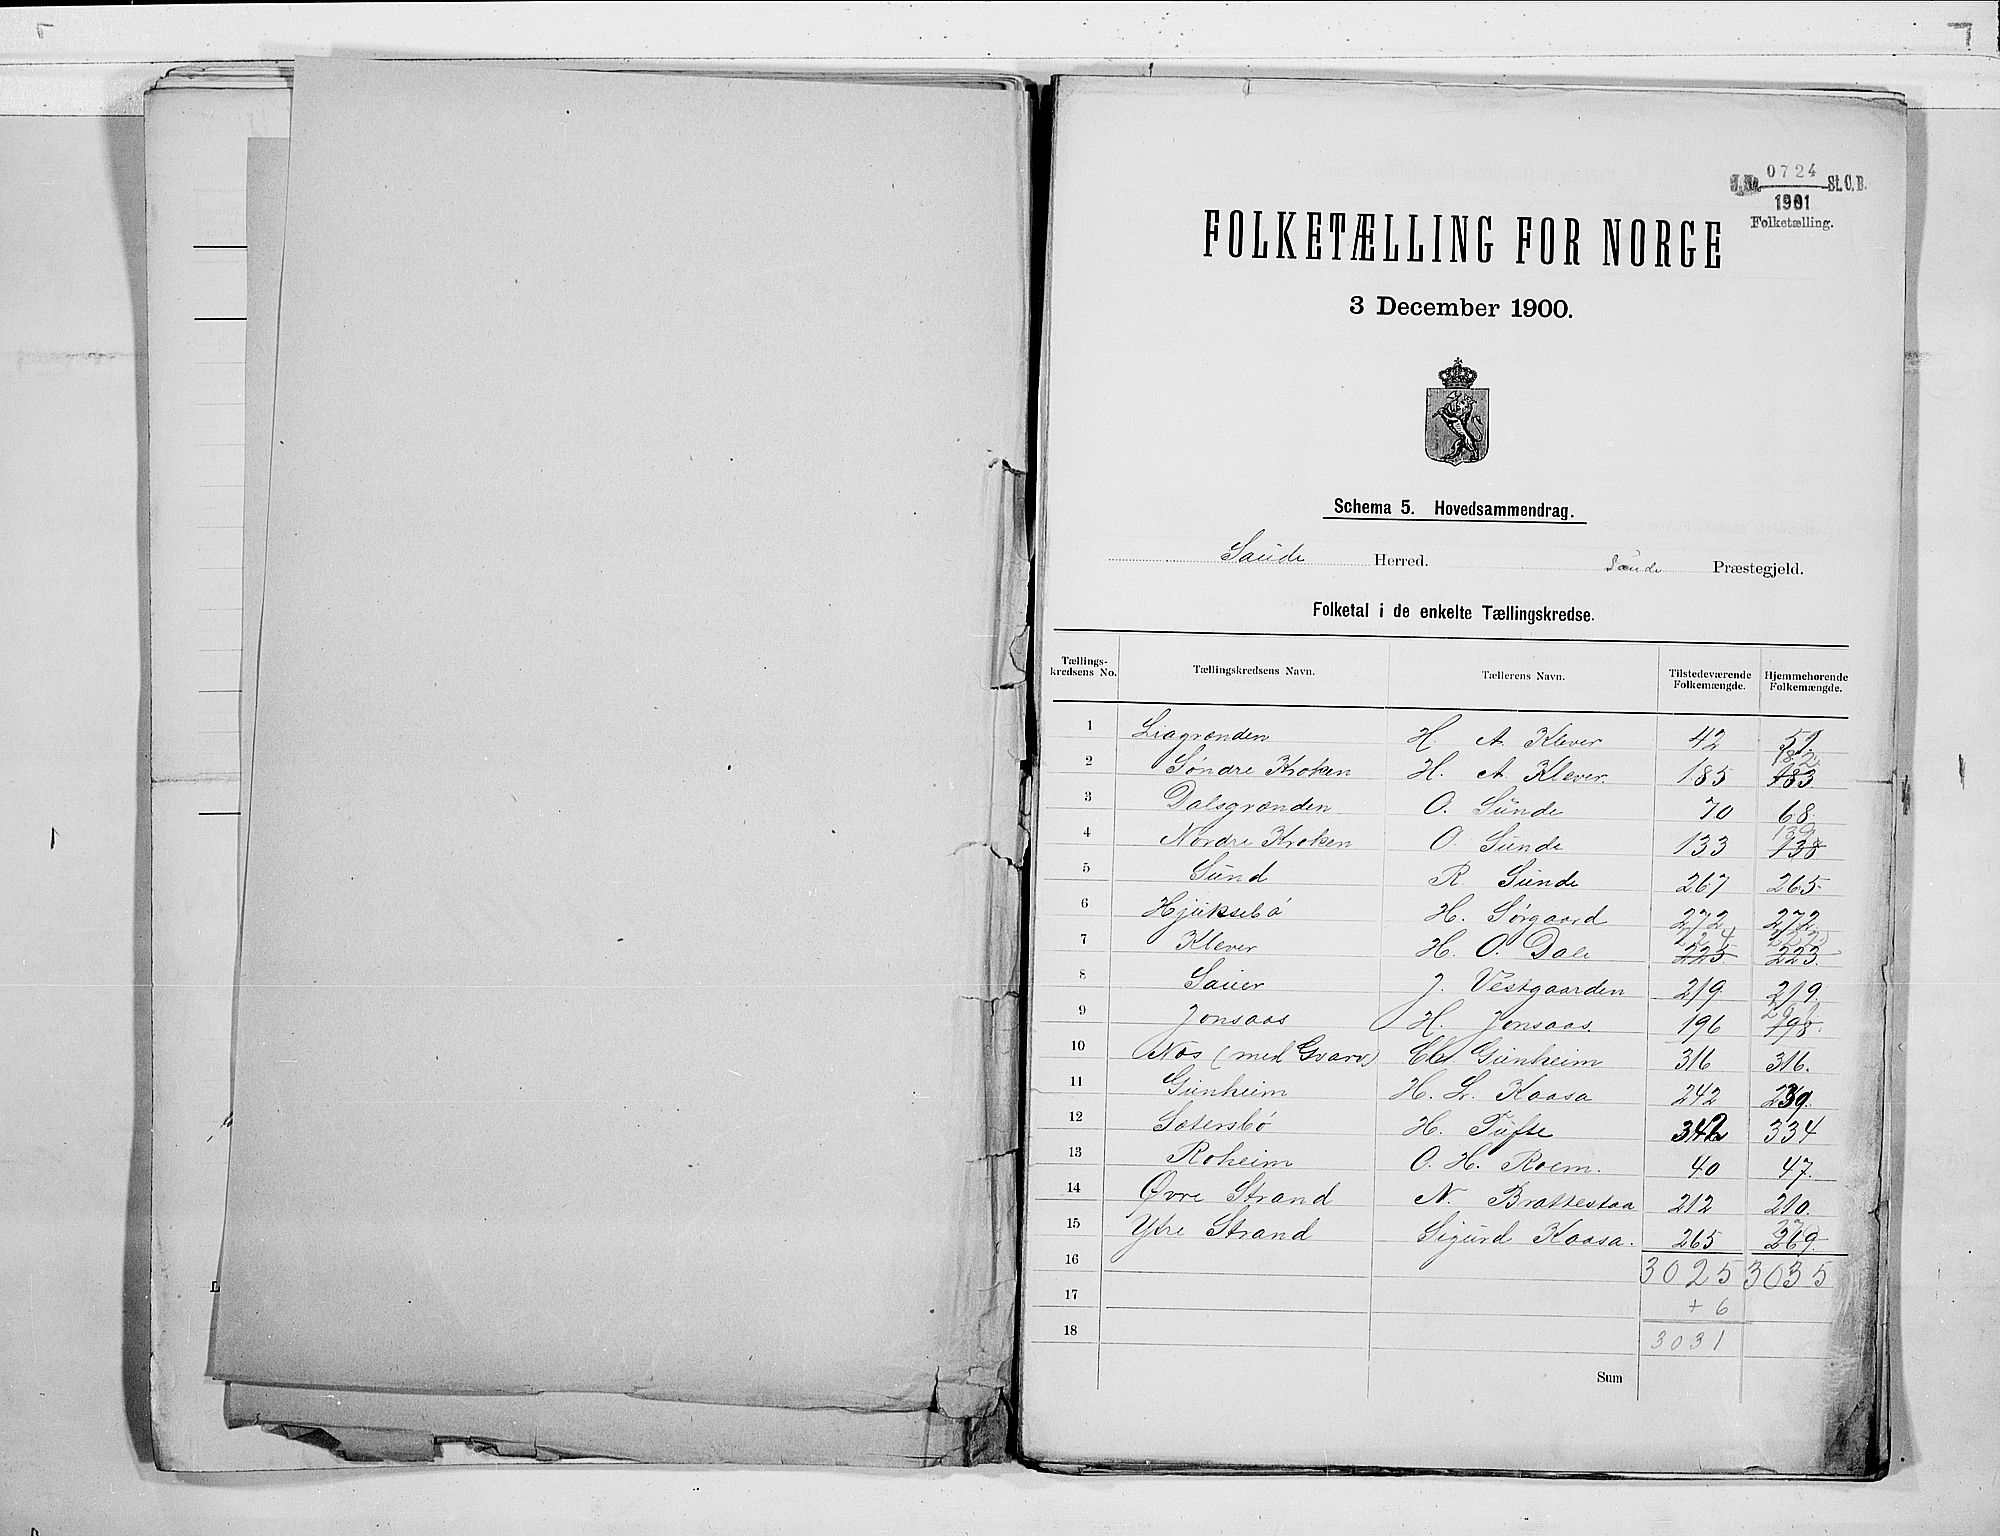 0724
J.No. St.C.B.
1901
Folketælling.
FOLKETÆLLING FOR NORGE
3 December 1900.
Schema 5. Hovedsammendrag.
Saude Herred. Saude Præstegjeld.
Folketal i de enkelte Tællingskredse.
Tællings-kredsens No. Tællingskredsens Navn. Tællerens Navn. Tilstedeværende Folkemængde. Hjemmehørende Folkemængde.
1 Liagrænden H. A. Klever 42 51.
2 Søndre Kroken H. A. Klever. 185 182 183
3 Dalsgrænden O. Sunde 70 68
4 Nordre Kroken O. Sunde 133 139 138
5 Sund R. Sunde 267 265
6 Hjuksebø H. Sørgaard 272 272
7 Klever H. O. Dale 224 225 222 223
8 Sauer J. Vestgaarden 219 219
9 Jonsaas H. Jonsaas. 196 198
10 Nos (med Gvarv) Gunheim 316 316.
11 Gunheim H. L. Kaasa 242 239.
12 Sætersbø H. Tufte 342 334
13 Roheim O. H. Roem. 40 47.
14 Øvre Strand N. Brattestaa 212 210.
15 Ytre Strand Sigurd Kaasa. 265 269
16 3025 3035
17 + 6
18 3031
Sum